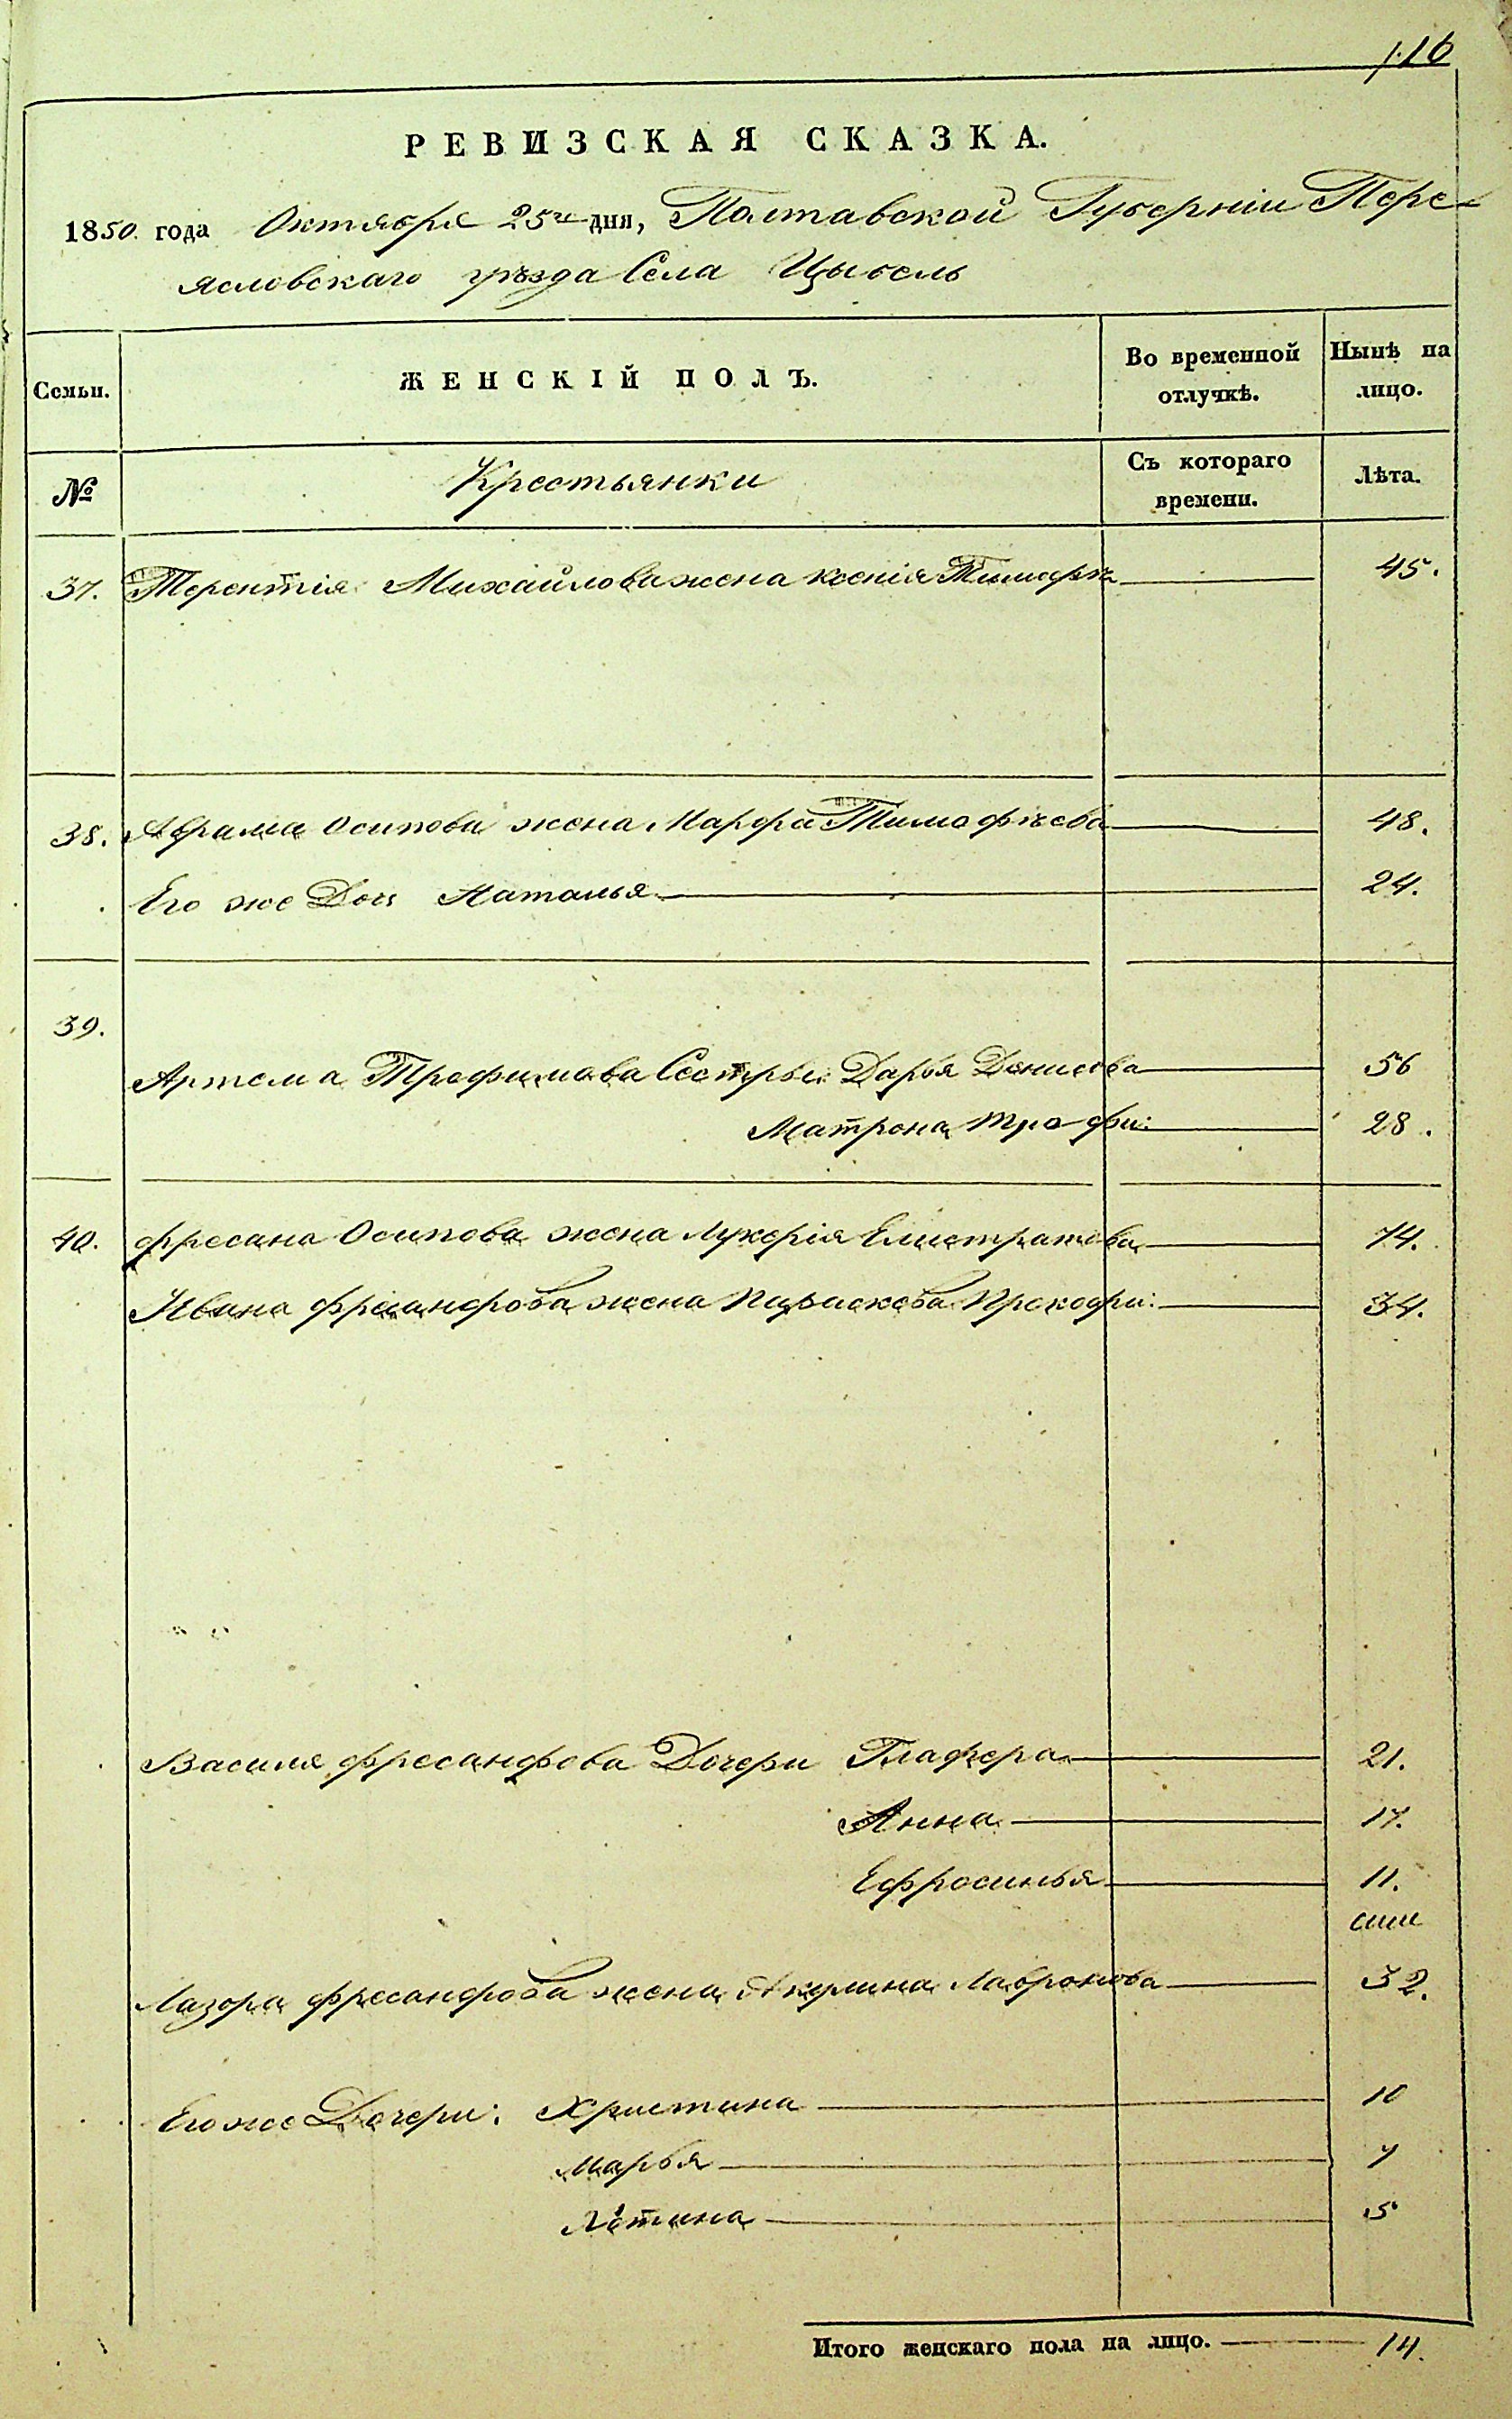 116
РЕВИЗСКАЯ СКАЗКА.
1850. года Октября 25го дня, Полтавской Губерніи Пере-
ясловскаго уѣзда Села Цыбель
Семьи. ЖЕНСКІЙ ПОЛЪ. Во временной отлучкѣ. Нынѣ на лицо.
№ Крестьянки Съ котораго времени. Лѣта.
37. Терентія Михайлова жена Ксенія Тимофѣ 45.
38. Аврама Осипова жена Марфа Тимофѣева 48.
Его же Дочь Наталья 24.
39.
Артема Трофимова Сестры: Дарья Денисова 56
Матрона Трофи: 28.
40. Осипова жена Лукерія Елистратова 74.
Ивана жена Параскева Прокофи: 34.
Василя Дочери Глафера 21.
Анна 17.
Ефросинья 11.
Лазора жена Акулина 32.
Его же Дочери: Христина 10
Марья 7
5
Итого женскаго пола на лицо. 14.